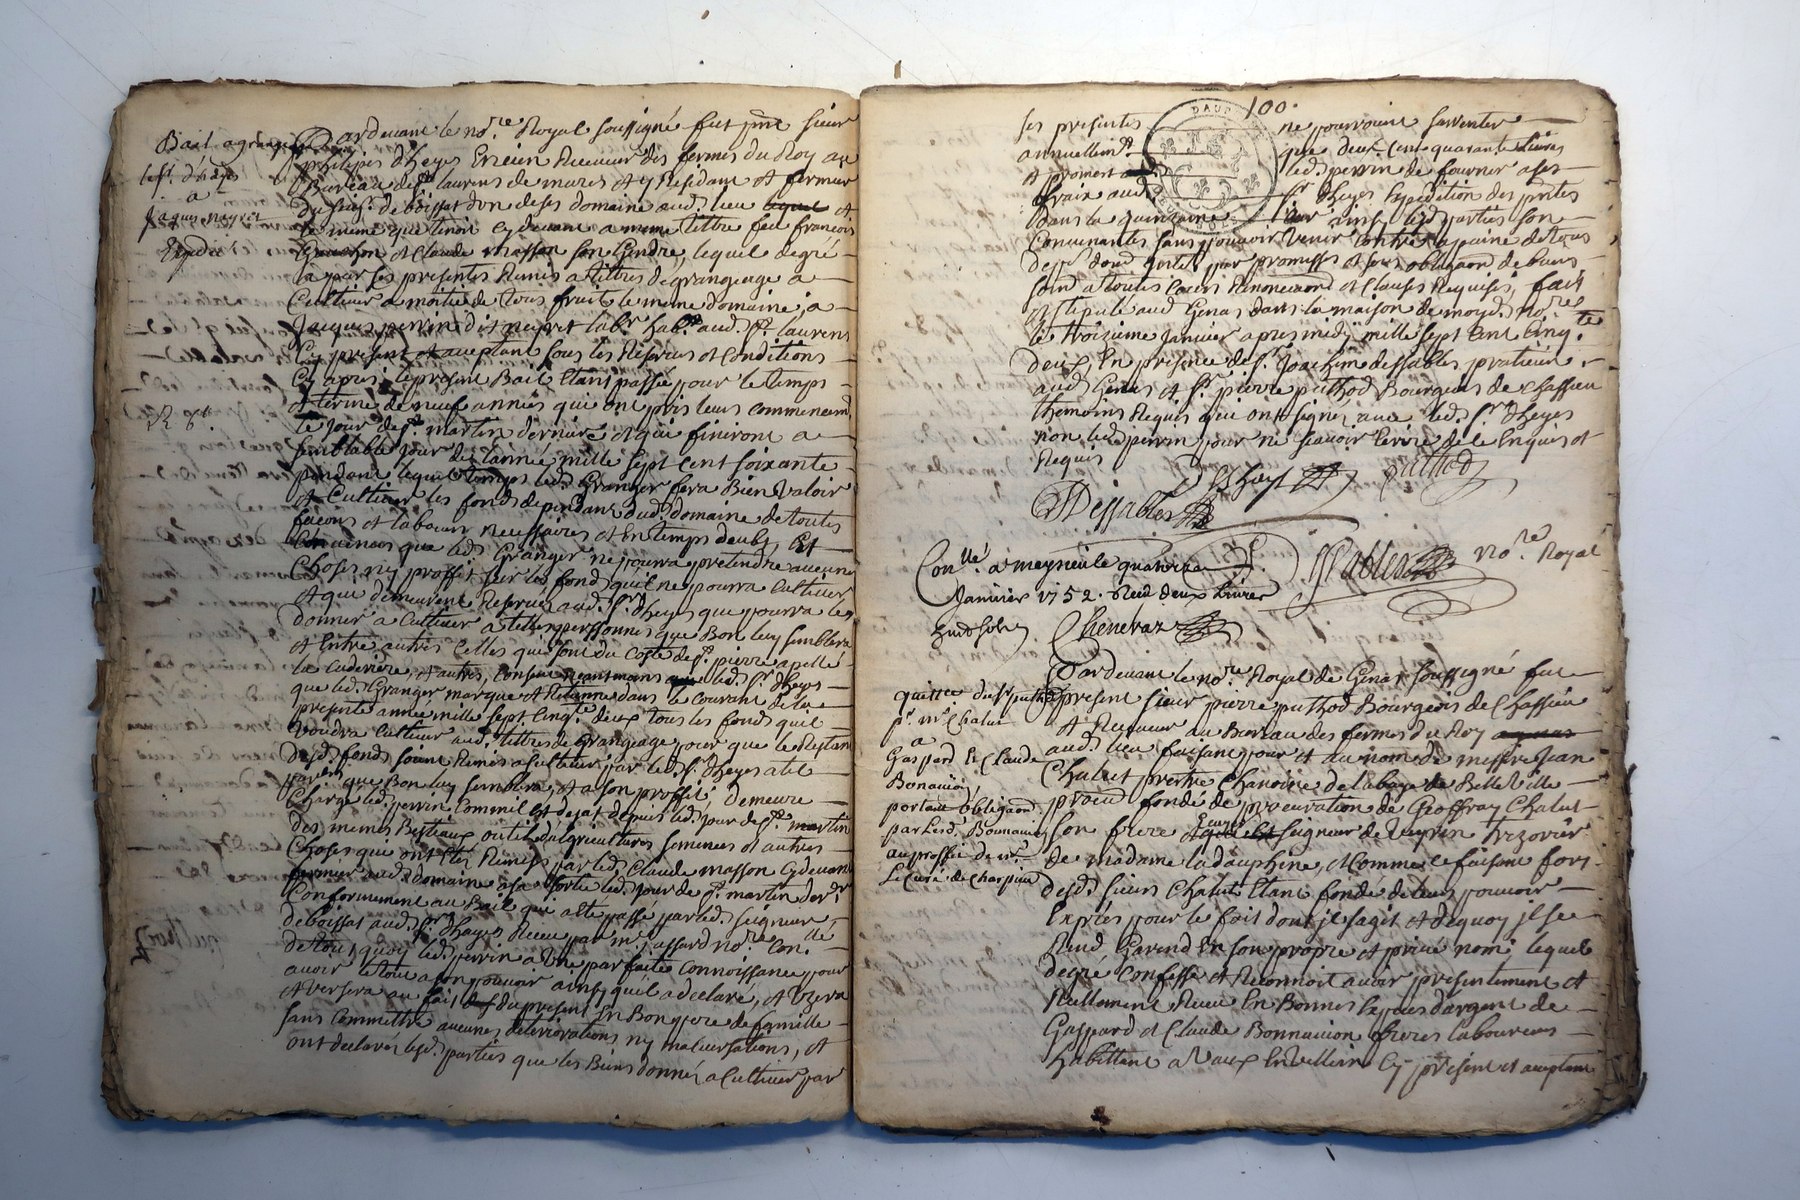 Bail a grangeage
le sr. d'heyes
a
Jaques neyret
Expdié
R 6s.
Pardevant le nore. Royal soussigné fut pnt sieur
philipes d'heyes Encien Receveur des fermes du Roy au
Bureau de st. laurens de mures et y Residant et fermier
du seigr. de boissat d'un de ses domaine aud. lieu et
le meme que tenoit cydevant a meme tittre feu francois
et Claude masson son Gendre, lequel de gré
la par ses presentes Remis a tittres de grangeage a
Cultiver a moitié de tous fruits le meme domaine, a
Jacques perrin dit neyret labr. habt. aud. st. laurens
Cy present et aceptant sous les Réserves et Conditions
Cy apres, le present Bail Etant passé pour le temps
et terme de neuf années qui ont pris leurs commencemt.
le jour de st. martin derniere et qui finiront a
semblable jour de l'année mille sept cent soixante
pendant lequel temps led. Granger fera Bien valoir
et Cultiver les fonds dependant dud. domaine de toutes
façons et labours necessaires et En temps deub, Et
que led. Granger ne pourra pretendre aucune
Choses ny proffit sur les fonds qu'il ne pourra Cultiver
et que demeurent Reservés aud. sr. d'heyes que pourra les
donner a Cultiver a telles perssonnes que Bon luy semblera
et Entre autres Celles qui sont du Costé de st. pierre apellé
la et autres, Consent neantmoins led. sr. d'heyes
que led. Granger marque et Retienne dans le courant de la
presente année mille sept cinqte. deux tous les fonds quil
voudra Cultiver aud. tittres de Grangeage pour que le Restant
desd. fonds soient Remis a Cultiver par led. sr. d'heyes a tel
particr. que Bon luy semblera et a son proffit, demeure
Chargé led. perrin Comme il est dejat depuis led. jour de st. martin
des memes Bestiaux outils d'agriculture semences et autres
Choses qui ont étés Remises par led. Claude masson Cydevant
fermier aud. domaine a sa sortie led. jour de st. martin derr.
Conformement au Bail qui a été passé par led. seigneur
de boissat aud. sr. d'heyes Reçeu par me. jassard nore.
de tout quoy led. perrin a Une parfaite Connoissance pour
avoir le tout a son pouvoir ainsy quil a declaré, et Uzera
et versera au fait du present En Bon pere de famille
sans Commettre aucunes deteriorations ny malversations, et
ont declarés lesd. parties que les Biens donnés a Cultiver par
100.
DAUP
ses presentes ne pourroient s'arrenter
annuellemt. que deux Cent quarante livres
et promet led. perrin de fournir a ses
fraix aud. sr. d'heyes Expedition des pntes
dans la quinzaine ainsy lesd. parties Son
Convenantes sans pouvoir venir Contre a paine de tous
desps. dom. par promesses et sous obligaõns de biens
soumd. a toutes Cours Renonciaõn et Clauses Requises, fait
et stipulé aud. Genas dans la maison de moyd. nore.
le troizieme Janvier apres midy mille sept Cent Cinqte.
deux, En presence de sr. Joachim dessables praticien
aud. Genas et sr. pierre puthod Bourgeois de Chassieu
themoins Requis qui ont signés avec led. sr. d'heyes
non led. perrin pour ne sçavoir Ecrire de ce Enquis et
Requis
D'heyes puthod
Dessables
Conllé. a meyzieu le quatorze
Janvier 1752. Reçu deux Livres
huit sols
Cheneraz
Dessables Nore. Royal
quittce du sr puthod
pr. mr. Chalut
a
Gaspard Et Claude
Bonnaision
portant obligaõn
par lesd. Bonnaision
au proffit de mr.
Le Curé de Charpieu
Pardevant le nore. Royal de Genas soussigné fut
present sieur pierre puthod Bourgeois de Chassieu
et Receveur au Bureau des fermes du Roy
aud. lieu faisant pour et au nom de messire Jean
Chalut prestre Chanoine de l'abaye de Belleville
fondé de procuration de Geoffroy Chalut
son frere Ecuyer seigneur de Veyrin trezorier
de madame la dauphine, et Comme se faisant fort
desd. sieurs Chalut Etant fondé de leur pouvoir
Expriés pour le fait dont jl s'agit et de quoy jl se
Rend Garend En son propre et privé nom, lequel
de gré Confesse et Reconnoit avoir presentement et
Reellement Reçeu En Bonnes Especes d'argent de
Gaspard et Claude Bonnaision freres laboureurs
habittant a Vaux En Velliein Cy present et aceptant